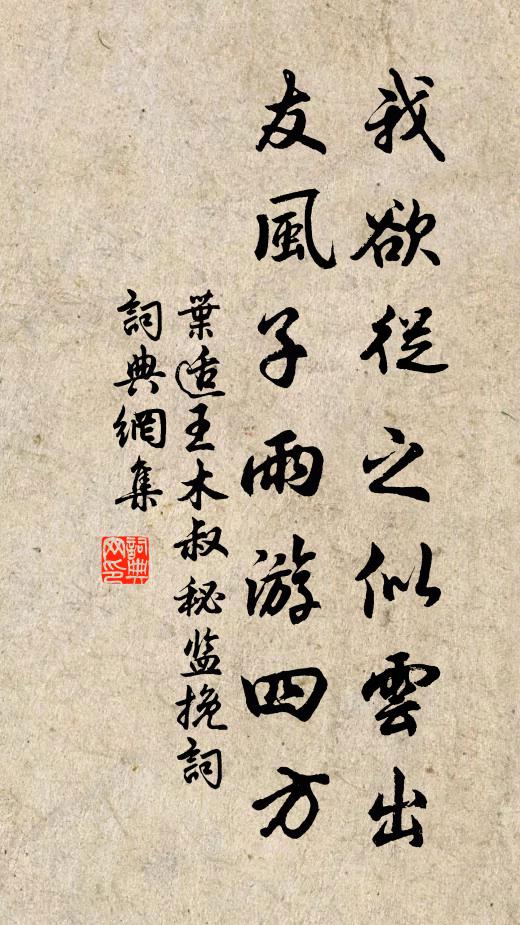 我欲從之似雲出
友風子雨游四方
葉适王木叔秘监挽詞
詞典網集
詞典網印